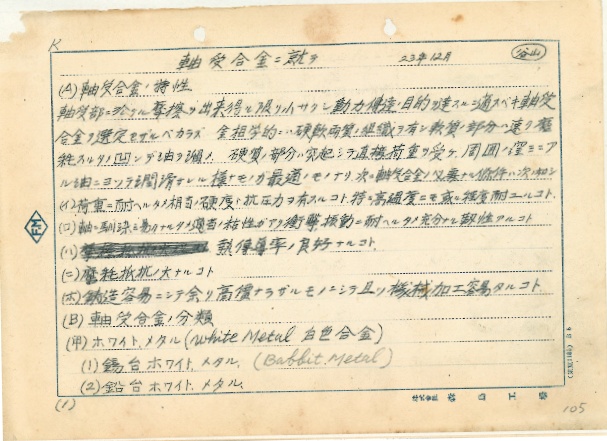 K
軸受合金ニ就テ 23年12月 谷山
(A) 軸受合金ノ特性
軸受部ニ於ケル摩擦ヲ出来得ル限リ小サクシ動力傳達ノ目的ヲ達スルニ適スベキ軸受
合金ヲ選定セザルベカラズ 金相学的ニハ硬軟両質ノ組織ヲ有シ軟質ノ部分ハ速ク摩
耗スルタメ凹ンデ油ヲ溜メ、硬質ノ部分ハ突起シテ直接荷重ヲ受ケ、周囲ノ窪ミニア
ル油ニヨツテ潤滑サレル様ナモノガ最適ノモノナリ、次ニ軸受合金ノ必要ナル條件ハ次ノ如シ
(イ) 荷重ニ耐ヘルタメ相当ノ硬度ト抗圧力ヲ有スルコト、特ニ高温度ニモ或ル程度耐ユルコト
(ロ) 軸ニ馴染ミ易キタメ適当ノ粘性ガアリ衝撃振動ニ耐ヘルタメ充分ナル靱性アルコト
(ハ) 熱傳導率ノ良好ナルコト
(ニ) 摩耗抵抗ノ大ナルコト
(ホ) 鋳造容易ニシテ余リ高價ナラザルモノニシテ且ツ機械加工容易ナルコト
(B) 軸受合金ノ分類
(甲) ホワイトメタル (White Metal 白色合金)
(1) 錫台ホワイトメタル (Babbit Metal)
(2) 鉛台ホワイトメタル
(1) 株式会社 工 105